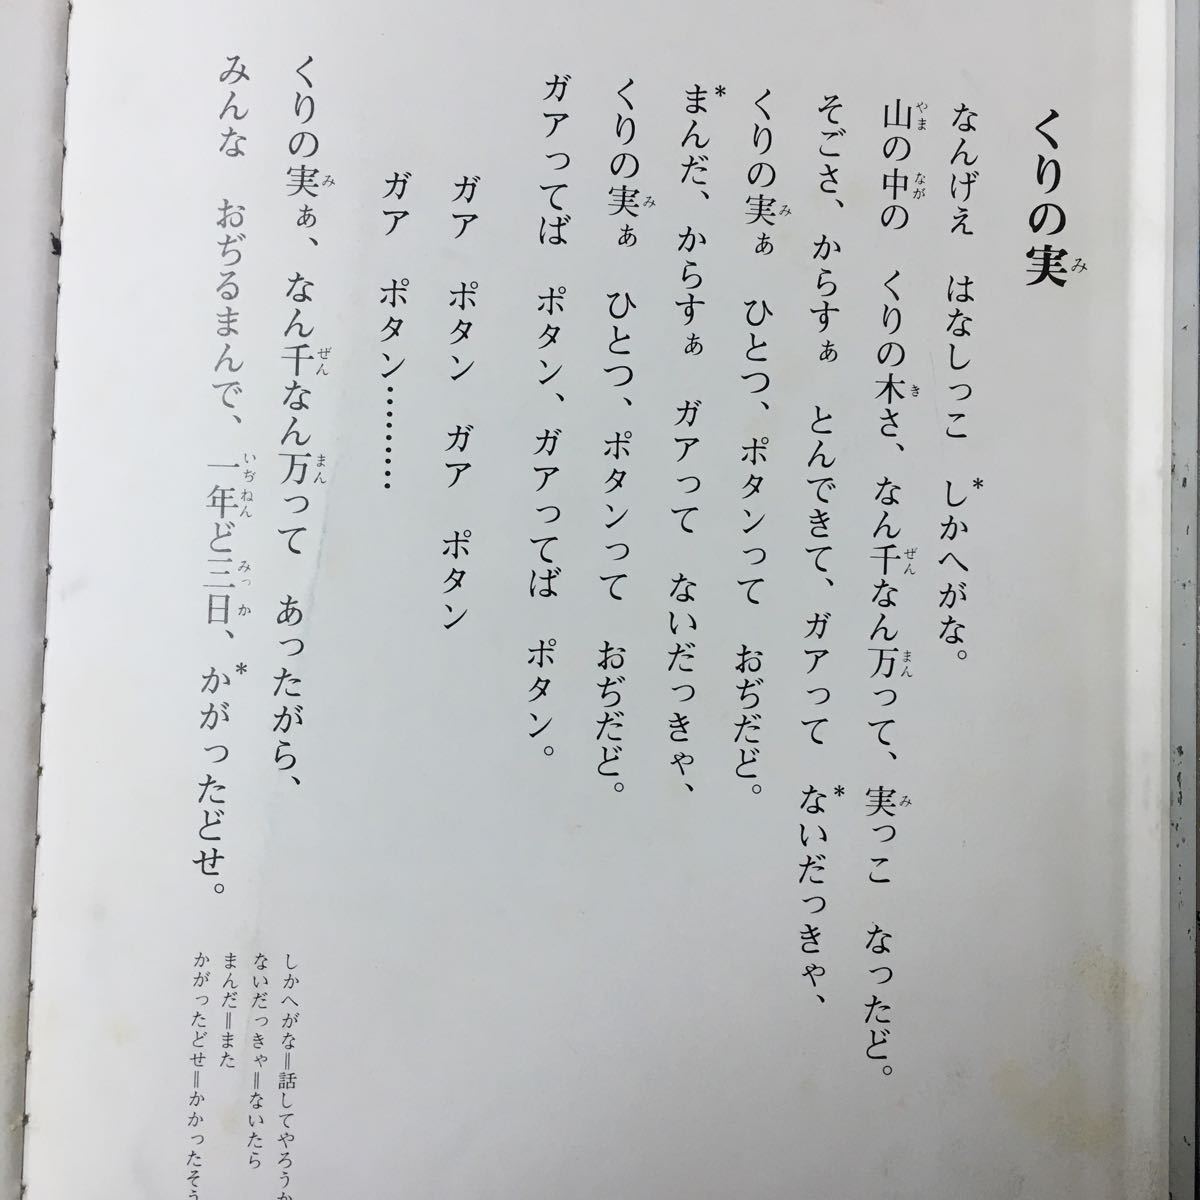 くりの実
なんげえ　はなしっこ　*しかへがな。
山の中の　くりの木さ、なん千なん万って、実っこ　なったど。
そごさ、からすぁ　とんできて、ガアって　*ないだっきゃ、
くりの実ぁ　ひとつ、ポタンって　おぢだど。
*まんだ、からすぁ　ガアって　ないだっきゃ、
くりの実ぁ　ひとつ、ポタンって　おぢだど。
ガアってば　ポタン、ガアってば　ポタン。
ガア　ポタン　ガア　ポタン
ガア　ポタン………
くりの実ぁ、なん千なん万って　あったがら、
みんな　おぢるまんで、一年ど三日、*かがったどせ。
しかへがな＝話してやろうか
ないだっきゃ＝ないたら
まんだ＝また
かがったどせ＝かかったそう